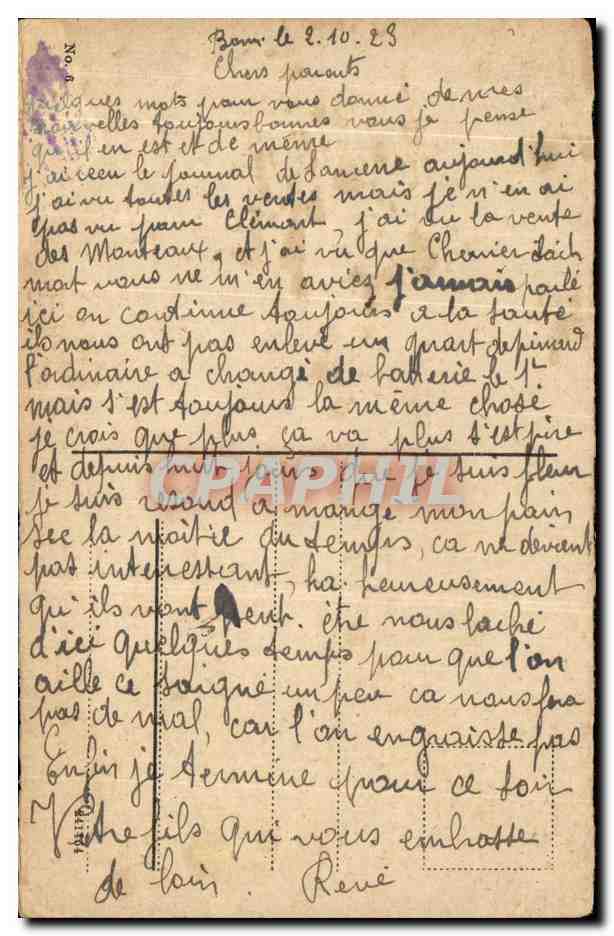 Bonn le 2.10.23
Chers parents
No. 6
quelques mots pour vous donné de mes
nouvelles toujours bonnes vous je pense
qu'il en est et de même
j'ai reçu le journal de aujourd'hui
j'ai vu toutes les ventes mais je n'en ai
pas vu pour Clémont, j'ai vu la vente
des Manteaux, et j'ai vu que Chenier
mat vous ne m'en aviez jamais parlé
ici on continue toujours a la sauté
ils nous ont pas enlevé un quart de pinard
l'ordinaire a changé de batterie le 1er
mais s'est toujours la même chose
je crois que plus ça va plus s'est pire
et depuis huit jours que je suis
je suis resoud a mangé mon pain
sec la moitié du temps, ca ne devient
pas interressant, ha heureusement
qu'ils vont peut. être nous laché
d'ici quelques temps pour que l'on
aille ce soigné un peu ca nous fera
pas de mal, car l'on engraisse pas
Enfin je termine pour ce soir
Votre fils qui vous embrasse
de loin. René
CPAPHIL